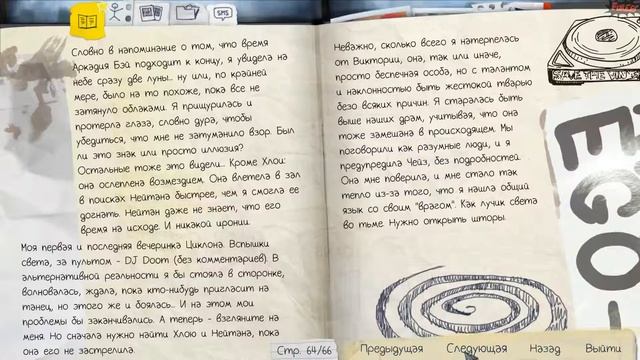 SMS
Словно в напоминание о том, что время
Аркадия Бэй подходит к концу, я увидела на
небе сразу две луны... ну или, по крайней
мере, было на то похоже, пока все не
затянуло облаками. Я прищурилась и
протерла глаза, словно дура, чтобы
убедиться, что мне не затуманило взор. Был
ли это знак или просто иллюзия?
Остальные тоже это видели... Кроме Хлои:
она ослеплена возмездием. Она влетела в зал
в поисках Нейтана быстрее, чем я смогла ее
догнать. Нейтан даже не знает, что его
время на исходе. И никакой иронии.
Моя первая и последняя вечеринка Циклона. Вспышки
света, за пультом - DJ Doom (без комментариев). В
альтернативной реальности я бы стояла в сторонке,
волновалась, ждала, пока кто-нибудь пригласит на
танец, но этого же и боялась... И на этом мои
проблемы бы заканчивались. А теперь - взгляните на
меня. Но сначала нужно найти Хлою и Нейтана, пока
она его не застрелила.
Неважно, сколько всего я натерпелась
от Виктории, она, так или иначе,
просто беспечная особа, но с талантом
и наклонностью быть жестокой тварью
безо всяких причин. Я старалась быть
выше наших драм, учитывая, что она
тоже замешана в происходящем. Мы
поговорили как разумные люди, и я
предупредила Чейз, без подробностей.
Она мне поверила, и мне стало так
тепло из-за того, что я нашла общий
язык со своим "врагом". Как лучик света
во тьме. Нужно открыть шторы.
SAVE THE VINYL
EGO-
Стр. 64/66
Предыдущая Следующая Назад Выйти